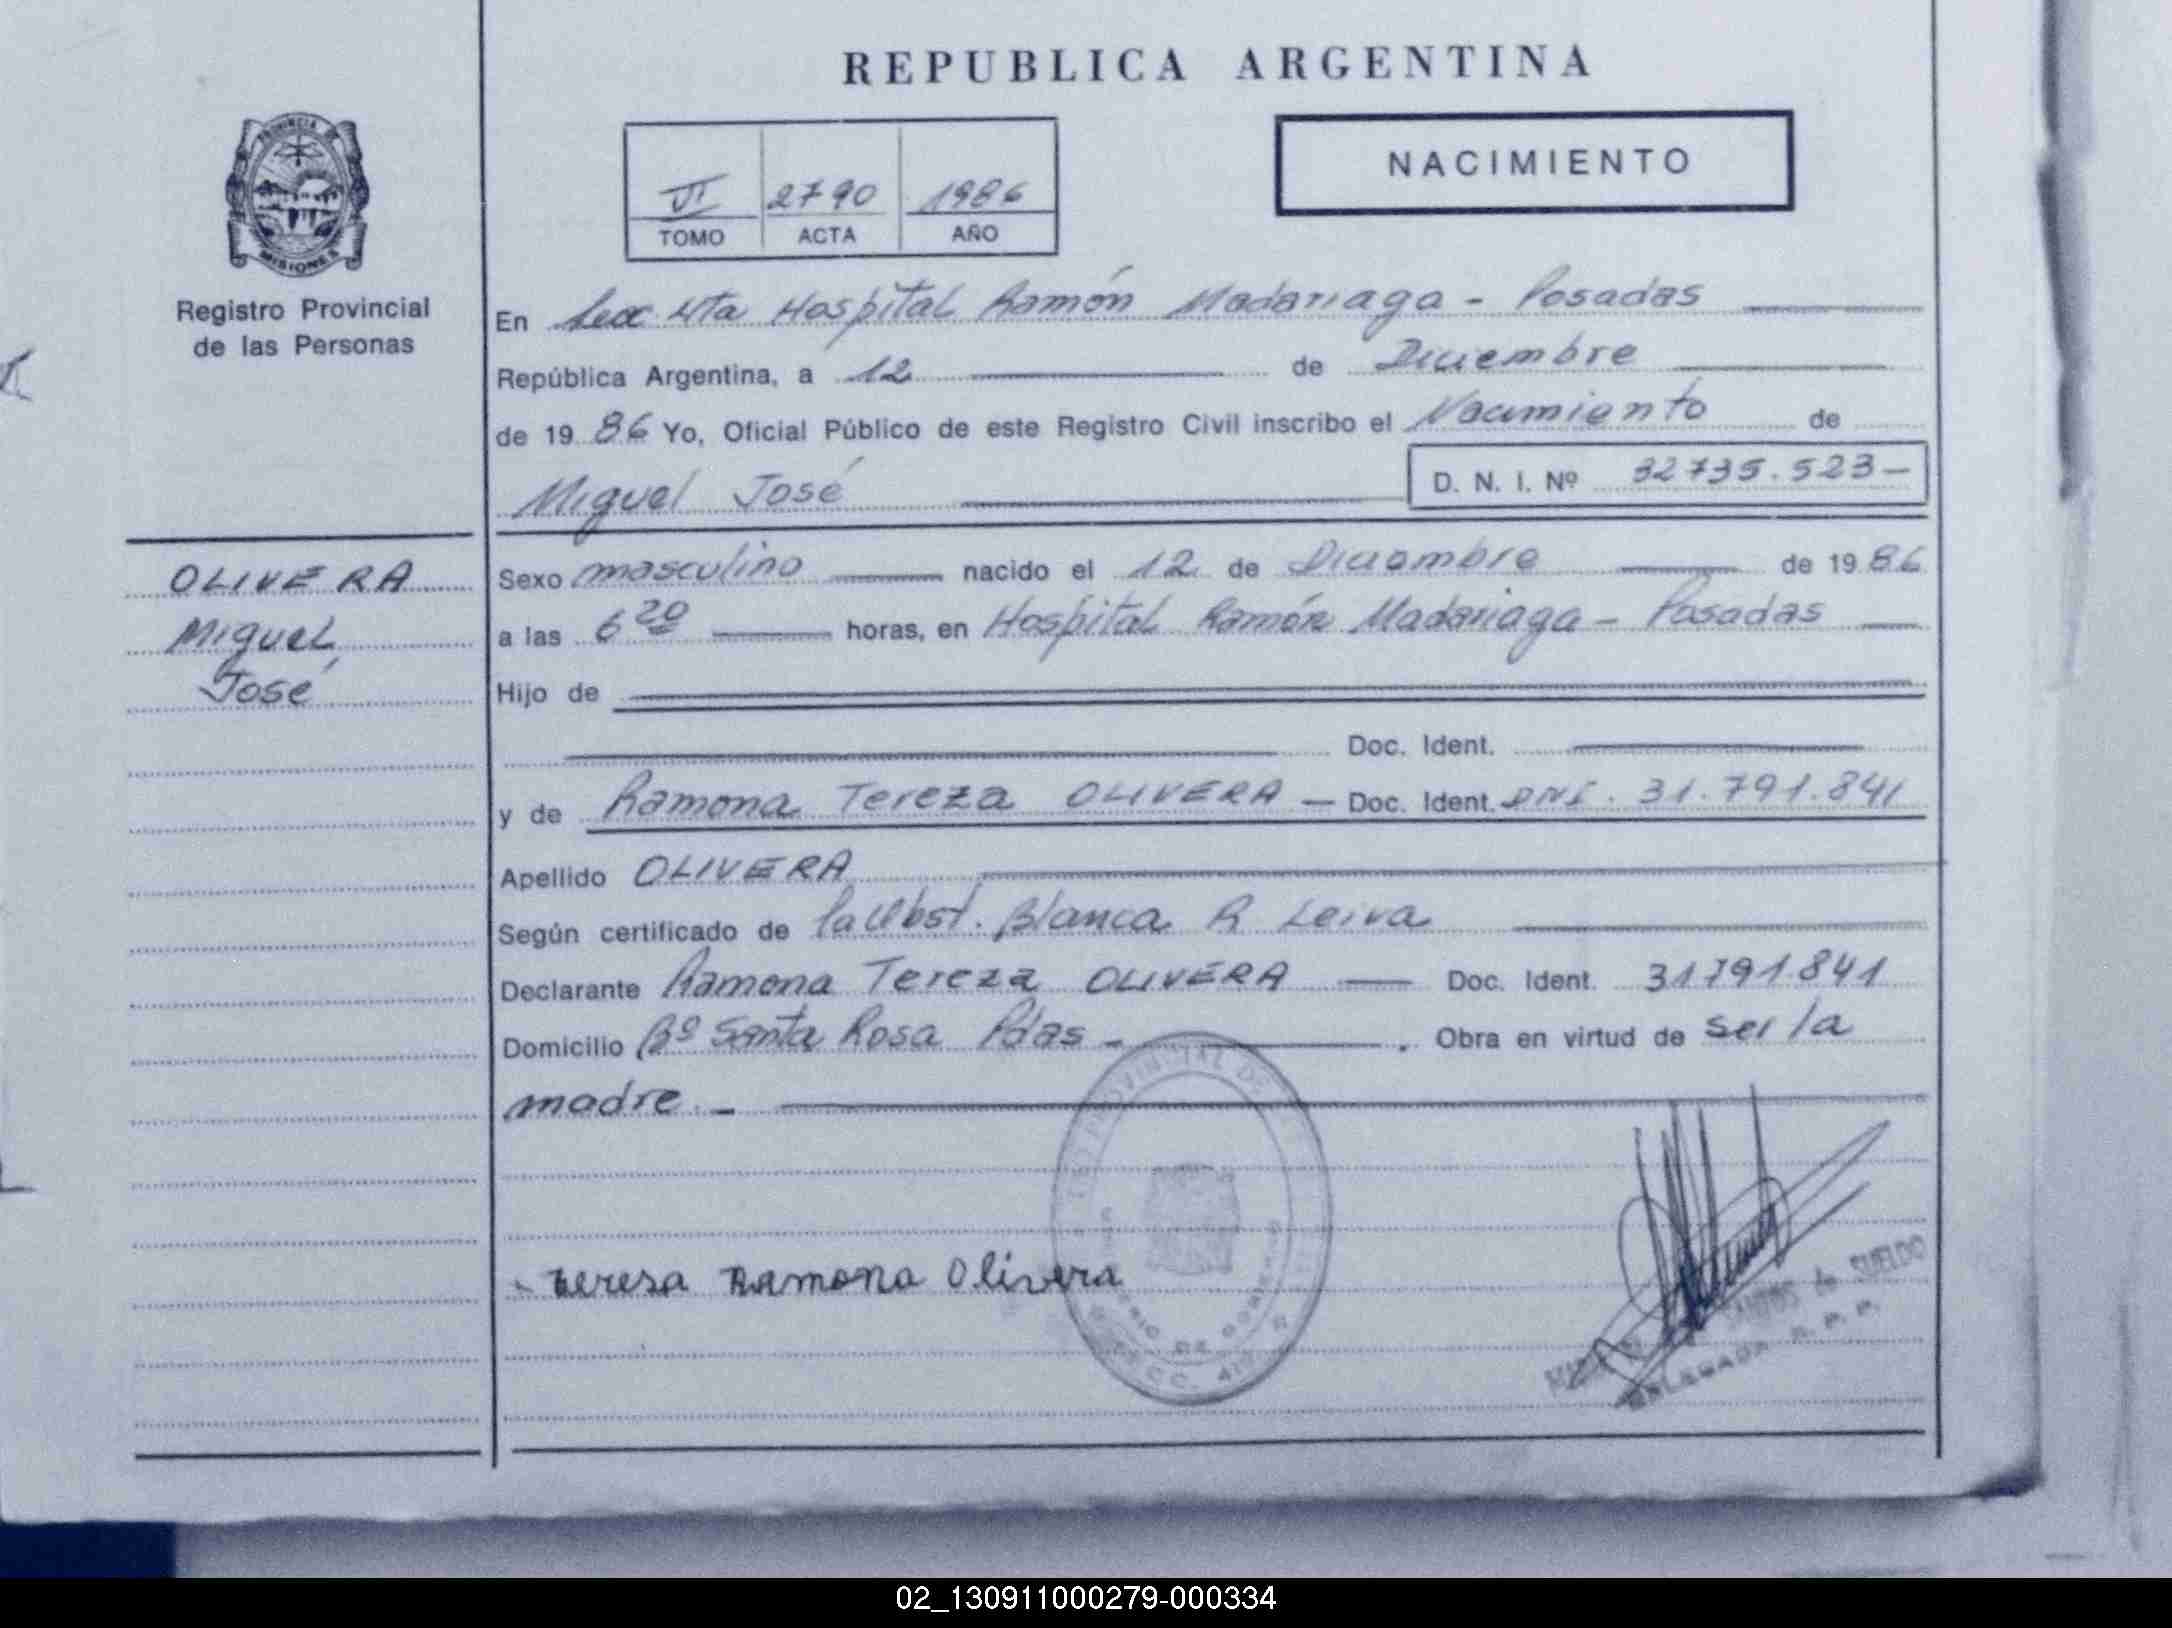 REPUBLICA ARGENTINA
PROVINCIA DE
MISIONES
Registro Provincial
de las Personas
VI 2790 1986
TOMO ACTA AÑO
NACIMIENTO
En Secc 4ta Hospital Ramón Madariaga - Posadas
República Argentina, a 12 de Diciembre
de 1986 Yo, Oficial Público de este Registro Civil inscribo el Nacimiento de
Miguel José
D. N. I. Nº 32735.523-
OLIVERA
Miguel
José
Sexo masculino nacido el 12 de Diciembre de 1986
a las 6 20 horas, en Hospital Ramón Madariaga - Posadas
Hijo de
Doc. Ident.
y de Ramona Tereza OLIVERA - Doc. Ident. DNI. 31.791.841
Apellido OLIVERA
Según certificado de la Obst. Blanca R Leiva
Declarante Ramona Tereza OLIVERA - Doc. Ident. 31791.841
Domicilio Bº Santa Rosa Pdas - . Obra en virtud de ser la
madre. -
teresa Ramona Olivera
PROVINCIAL DE
SUELDO
DELEGADA R. P. P.
02_130911000279-000334